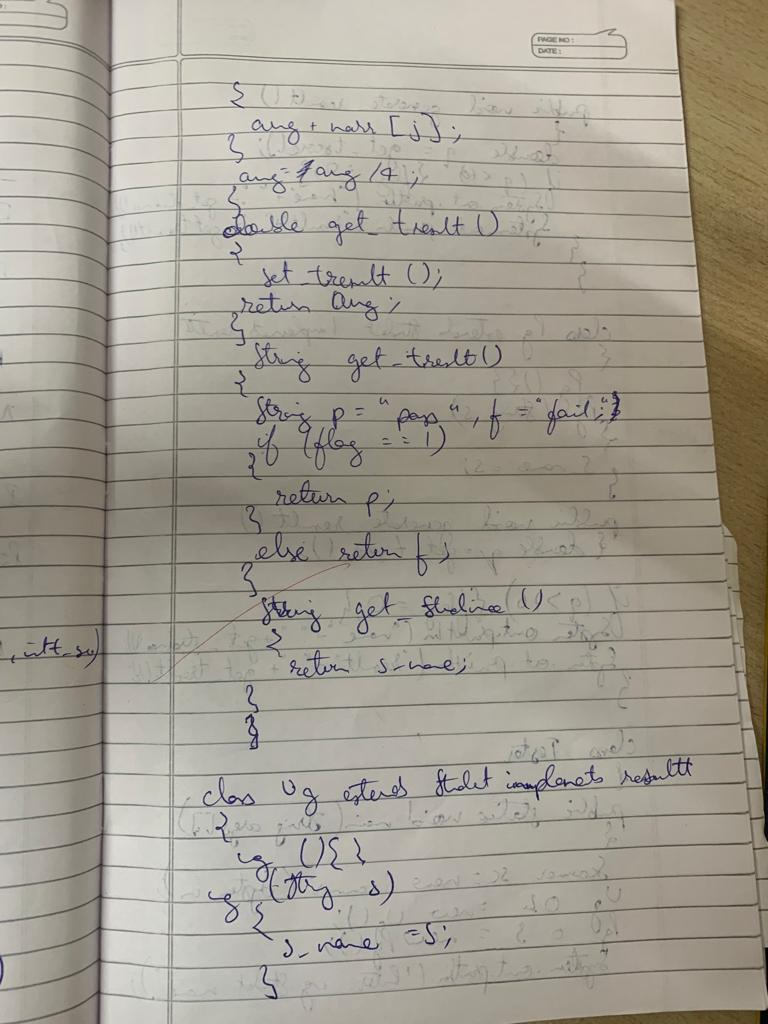 PAGE NO :
DATE :
{
avg + narr [j];
}
avg = avg / 4;
}
double get_tresult ()
{
set_tresult ();
return avg;
}
String get_treslt ()
{
String p = "pass", f = "fail";
if (flag == 1)
{
return p;
}
else return f;
}
String get_
{
return s_name;
}
}
class Ug extends Studet implements resultt
{
ug () { }
ug (Strg s)
{
s_name = S;
}